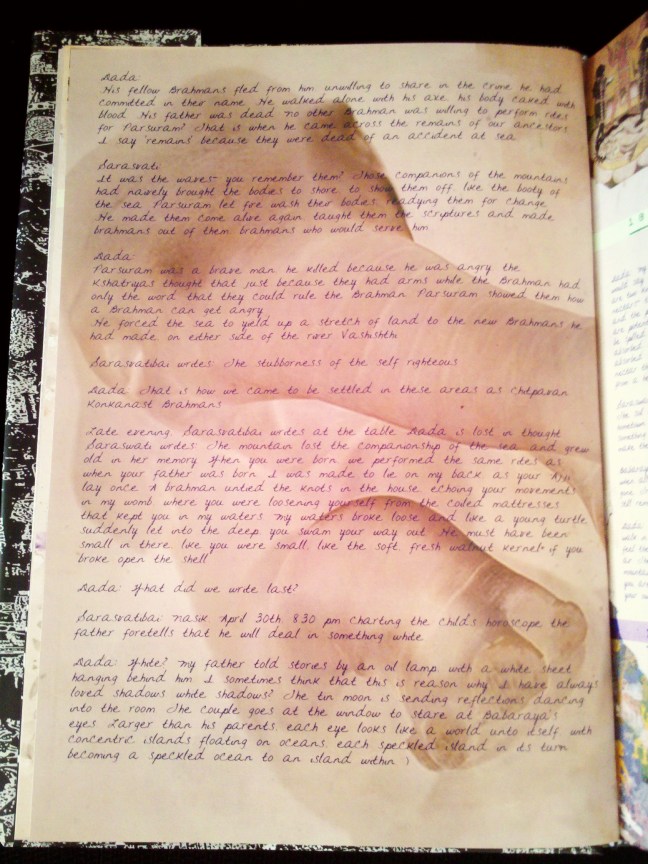 Dada:
His fellow Brahmans fled from him unwilling to share in the crime he had
committed in their name He walked alone with his axe his body caked with
blood His father was dead no other Brahman was willing to perform rites
for Parsuram? That is when he came across the remains of our ancestors
I say 'remains' because they were dead of an accident at sea
Sarasvati:
It was the waves- you remember them? Those companions of the mountains
had naively brought the bodies to shore, to show them off, like the booty of
the sea Parsuram let fire wash their bodies, readying them for change
He made them come alive again, taught them the scriptures and made
brahmans out of them, brahmans who would serve him
Dada:
Parsuram was a brave man, he killed because he was angry the
Kshatriyas thought that just because they had arms while the Brahman had
only the word that they could rule the Brahman Parsuram showed them how
a Brahman can get angry
He forced the sea to yield up a stretch of land to the new Brahmans he
had made on either side of the river Vashishthi
Sarasvatibai writes: The stubborness of the self righteous
Dada: That is how we came to be settled in these areas as Chitpavan
Konkanast Brahmans
Late evening, Sarasvatibai writes at the table Dada is lost in thought
Sarasvati writes: The mountain lost the companionship of the sea and grew
old in her memory When you were born we performed the same rites as
when your father was born I was made to lie on my back as your Aji
lay once A brahman untied the knots in the house echoing your movements
in my womb where you were loosening yourself from the coiled mattresses
that kept you in my waters My waters broke loose and like a young turtle
suddenly let into the deep, you swam your way out He must have been
small in there, like you were small, like the soft, fresh walnut kernel if you
broke open the shell
Dada: What did we write last?
Sarasvatibai: Nasik April 30th 8.30 pm charting the child's horoscope the
father foretells that he will deal in something white
Dada: White? My father told stories by an oil lamp, with a white sheet
hanging behind him I sometimes think that this is reason why I have always
loved shadows white shadows? The tin moon is sending reflections dancing
into the room The couple goes at the window to stare at Babaraya's
eyes Larger than his parents, each eye looks like a world unto itself, with
concentric islands floating on oceans, each speckled island in its turn
becoming a speckled ocean to an island within )